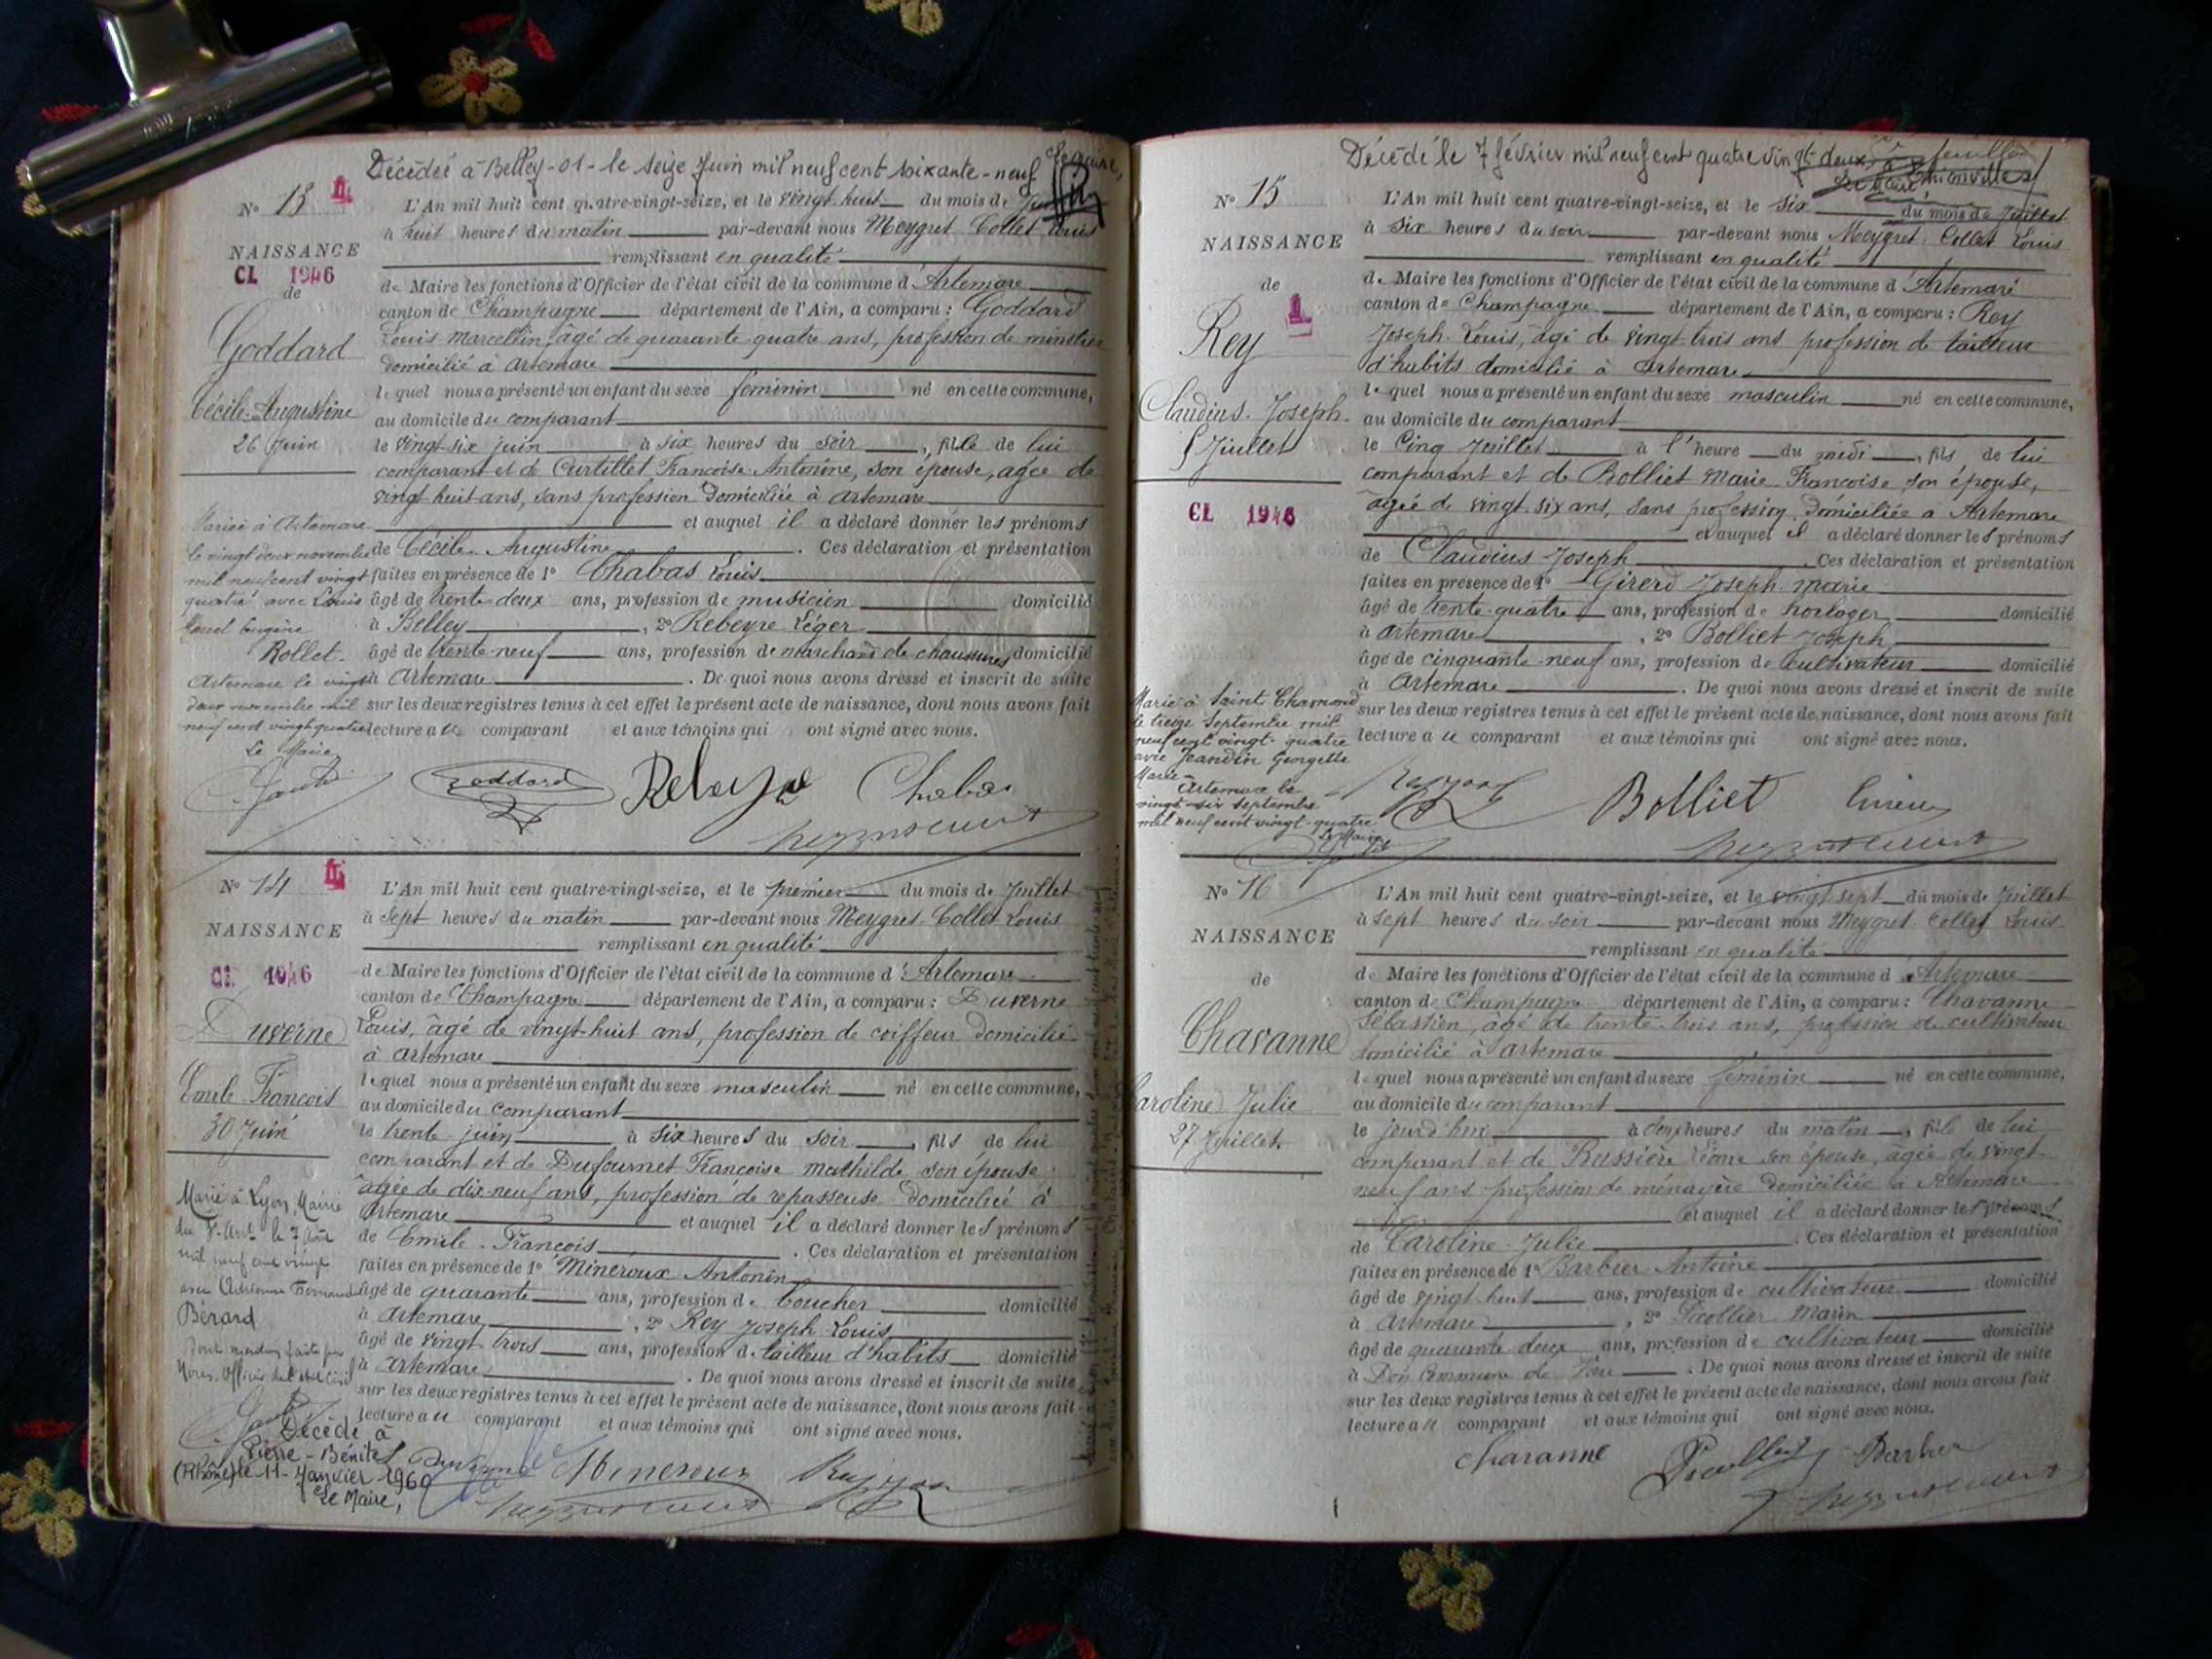 Décédée à Belley-01- le seize Juin mil neuf cent soixante-neuf
Le Maire,
N° 13
NAISSANCE
CL 1946
de
Goddard
Cécile-Augustine
26 Juin
L'An mil huit cent quatre-vingt-seize, et le vingt huit du mois de Juin
à huit heures du matin par-devant nous Meygret Collet Louis
remplissant en qualité
de Maire les fonctions d'Officier de l'état civil de la commune d'Artemare
canton de Champagne département de l'Ain, a comparu : Goddard
Louis Marcellin, âgé de quarante quatre ans, profession de
domicilié à Artemare
lequel nous a présenté un enfant du sexe féminin né en cette commune,
au domicile du comparant
le vingt-six juin à six heures du soir, fille de lui
comparant et de Curtillet Françoise Antonine, son épouse, agée de
vingt-huit ans, sans profession domiciliée à Artemare
et auquel il a déclaré donner les prénoms
de Cécile-Augustine. Ces déclaration et présentation
faites en présence de 1° Chabas Louis
âgé de trente-deux ans, profession de musicien domicilié
à Belley, 2° Rebeyre Léger
âgé de trente-neuf ans, profession de marchand de chaussures domicilié
à Artemare. De quoi nous avons dressé et inscrit de suite
sur les deux registres tenus à cet effet le présent acte de naissance, dont nous avons fait
lecture au comparant et aux témoins qui ont signé avec nous.
Mariée à Artemare
le vingt deux novembre
mil neuf cent vingt
quatre avec Louis
Marcel Eugène
Rollet.
Artemare le vingt
deux novembre mil
neuf cent vingt quatre
Le Maire
Goddard
Chabas
N° 14
NAISSANCE
CL 1946
Duverne
Emile-François
30 Juin
L'An mil huit cent quatre-vingt-seize, et le premier du mois de Juillet
à sept heures du matin par-devant nous Meygret-Collet Louis
remplissant en qualité
de Maire les fonctions d'Officier de l'état civil de la commune d'Artemare
canton de Champagne département de l'Ain, a comparu : Duverne
Louis, âgé de vingt-huit ans, profession de coiffeur domicilié
à Artemare
lequel nous a présenté un enfant du sexe masculin né en cette commune,
au domicile du comparant
le trente-juin à six heures du soir, fils de lui
comparant et de Dufournet Françoise Mathilde son épouse
agée de dix-neuf ans, profession de repasseuse domiciliée à
Artemare et auquel il a déclaré donner les prénoms
de Emile-François. Ces déclaration et présentation
faites en présence de 1° Mineroux Antonin
âgé de quarante ans, profession de boucher domicilié
à Artemare, 2° Rey Joseph Louis
âgé de vingt trois ans, profession de tailleur d'habits domicilié
à Artemare. De quoi nous avons dressé et inscrit de suite
sur les deux registres tenus à cet effet le présent acte de naissance, dont nous avons fait
lecture au comparant et aux témoins qui ont signé avec nous.
Marié à Lyon, Mairie
mil neuf cent vingt
Bérard
Décédé à
Pierre-Bénite
(Rhône) le 11 Janvier 1960
Le Maire,
Mineroux
Décédé le 7 février mil neuf cent quatre vingt deux
N° 15
NAISSANCE
de
Rey
Claudius-Joseph
5 Juillet
CL 1946
L'An mil huit cent quatre-vingt-seize, et le six du mois de Juillet
à six heures du soir par-devant nous Meygret Collet Louis
remplissant en qualité
de Maire les fonctions d'Officier de l'état civil de la commune d'Artemare
canton de Champagne département de l'Ain, a comparu : Rey
Joseph Louis, âgé de vingt-trois ans profession de tailleur
d'habits domicilié à Artemare
lequel nous a présenté un enfant du sexe masculin né en cette commune,
au domicile du comparant
le Cinq Juillet à l'heure du midi, fils de lui
comparant et de Bolliet Marie Françoise, son épouse,
agée de vingt six ans, sans profession, domiciliée à Artemare
et auquel il a déclaré donner les prénoms
de Claudius-Joseph. Ces déclaration et présentation
faites en présence de 1° Girerd Joseph-Marie
âgé de trente-quatre ans, profession de horloger domicilié
à Artemare, 2° Bolliet Joseph
âgé de cinquante-neuf ans, profession de cultivateur domicilié
à Artemare. De quoi nous avons dressé et inscrit de suite
sur les deux registres tenus à cet effet le présent acte de naissance, dont nous avons fait
lecture au comparant et aux témoins qui ont signé avec nous.
Marié à Saint Chamond
le treize Septembre mil
neuf cent vingt-quatre
avec Jeandin Georgette
Marie-
Artemare le
vingt-six septembre
mil neuf cent vingt-quatre
Le Maire
Bolliet
N° 16
NAISSANCE
de
Chavanne
Caroline Julie
27 Juillet.
L'An mil huit cent quatre-vingt-seize, et le vingt sept du mois de Juillet
à sept heures du soir par-devant nous Meygret Collet Louis
remplissant en qualité
de Maire les fonctions d'Officier de l'état civil de la commune d'Artemare
canton de Champagne département de l'Ain, a comparu : Chavanne
Sébastien, âgé de trente-trois ans, profession de cultivateur
domicilié à Artemare
lequel nous a présenté un enfant du sexe féminin né en cette commune,
au domicile du comparant
le jourd'hui à deux heures du matin, fille de lui
comparant et de Russière son épouse, agée de vingt
neuf ans profession de ménagère domiciliée à Artemare
et auquel il a déclaré donner les prénoms
de Caroline-Julie. Ces déclaration et présentation
faites en présence de 1° Barbier Antoine
âgé de vingt huit ans, profession de cultivateur domicilié
à Artemare, 2° Picollier Marin
âgé de quarante deux ans, profession de cultivateur domicilié
à Don Commune de. De quoi nous avons dressé et inscrit de suite
sur les deux registres tenus à cet effet le présent acte de naissance, dont nous avons fait
lecture au comparant et aux témoins qui ont signé avec nous.
Chavanne
Barbier